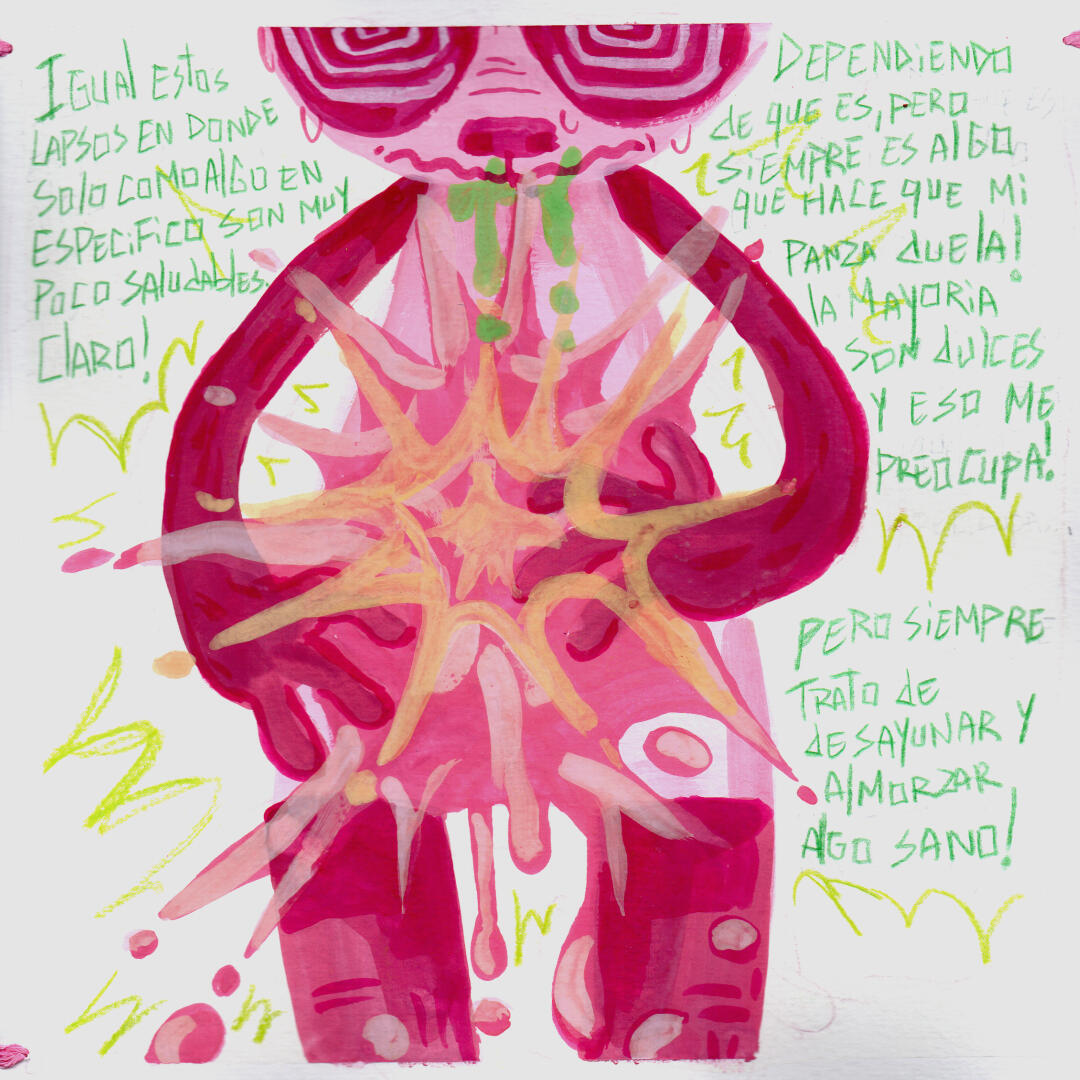 Igual estos
lapsos en donde
solo como algo en
especifico son muy
poco saludables.
Claro!
Dependiendo
de que es, pero
siempre es algo
que hace que mi
panza duela!
la mayoria
son dulces
y eso me
preocupa!
Pero siempre
trato de
desayunar y
almorzar
algo sano!